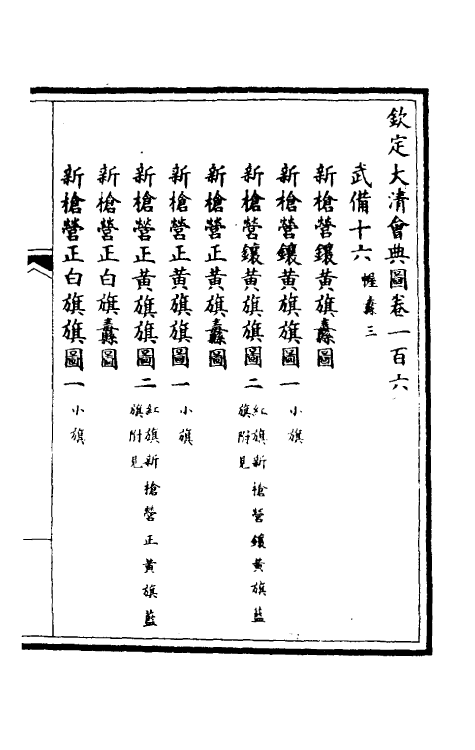 欽定大清會典圖卷一百六
武備十六 幄纛三
新槍營鑲黃旗纛圖
新槍營鑲黃旗旗圖一 小旗
新槍營鑲黃旗旗圖二 紅旗新槍營鑲黃旗藍旗附見
新槍營正黃旗纛圖
新槍營正黃旗旗圖一 小旗
新槍營正黃旗旗圖二 紅旗新槍營正黃旗藍旗附見
新槍營正白旗纛圖
新槍營正白旗旗圖一 小旗